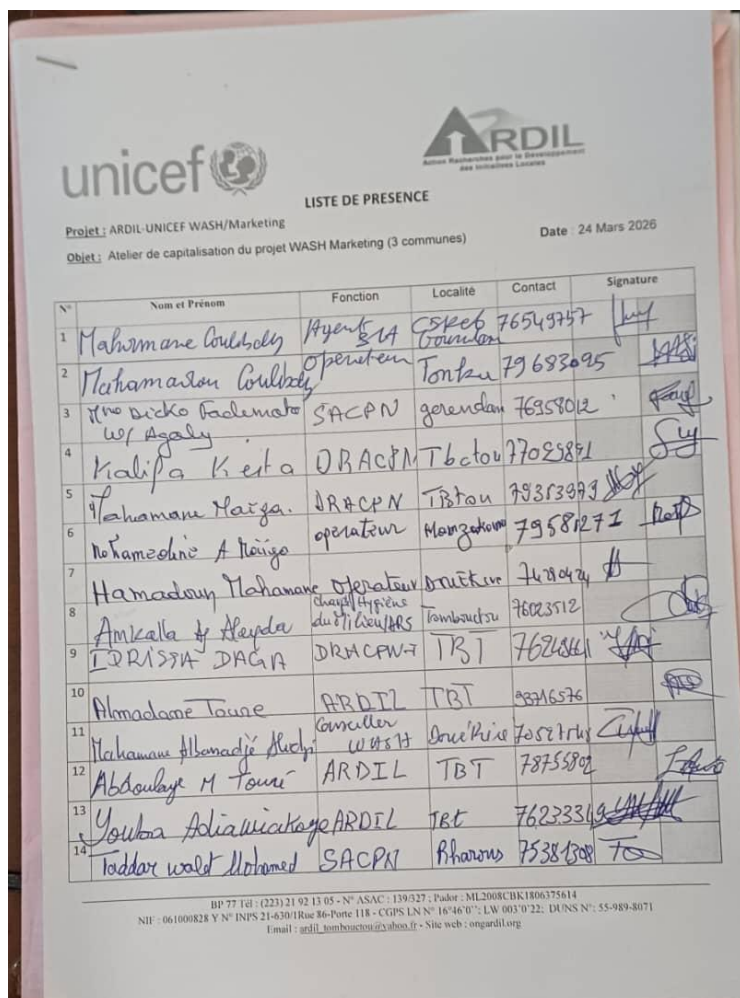 unicef
ARDIL
Action Recherches pour le Développement
des Initiatives Locales
LISTE DE PRESENCE
Projet : ARDIL-UNICEF WASH/Marketing
Date : 24 Mars 2026
Objet : Atelier de capitalisation du projet WASH Marketing (3 communes)
N° Nom et Prénom Fonction Localité Contact Signature
1 Mahamane Coulibaly Agent CSRéf 76549757
2 Mahamadou Coulibaly operateur Tonka 79683095
3 Mme Dicko Fadimata SACPN 76958012
w/ Agaly
4 Kalifa Keita DRACPN Tbctou 77029891
5 Mahamane Maïga. DRACPN TBtou 79353973
6 Mohamedine A Maïga operateur 79581271
7 Hamadoun Mahamane operateur
8 Amkalla Ag Tombouctou 76023512
9 IDRISSA DAGA TBT
10 Almadane Toure ARDIL TBT 93716576
11 Mahamane Conseiller
WASH
12 Abdoulaye M Touré ARDIL TBT 78755802
13 Youba ARDIL TBt 76233349
14 Taddar walet Mohamed SACPN Rharous 75381308
BP 77 Tél : (223) 21 92 13 05 - N° ASAC : 139/327 ; Pador : ML2008CBK1806375614
NIF : 061000828 Y N° INPS 21-630/1Rue 86-Porte 118 - CGPS LN N° 16°46'0''; LW 003'0'22; DUNS N°: 55-989-8071
Email : ardil_tombouctou@yahoo.fr - Site web : ongardil.org